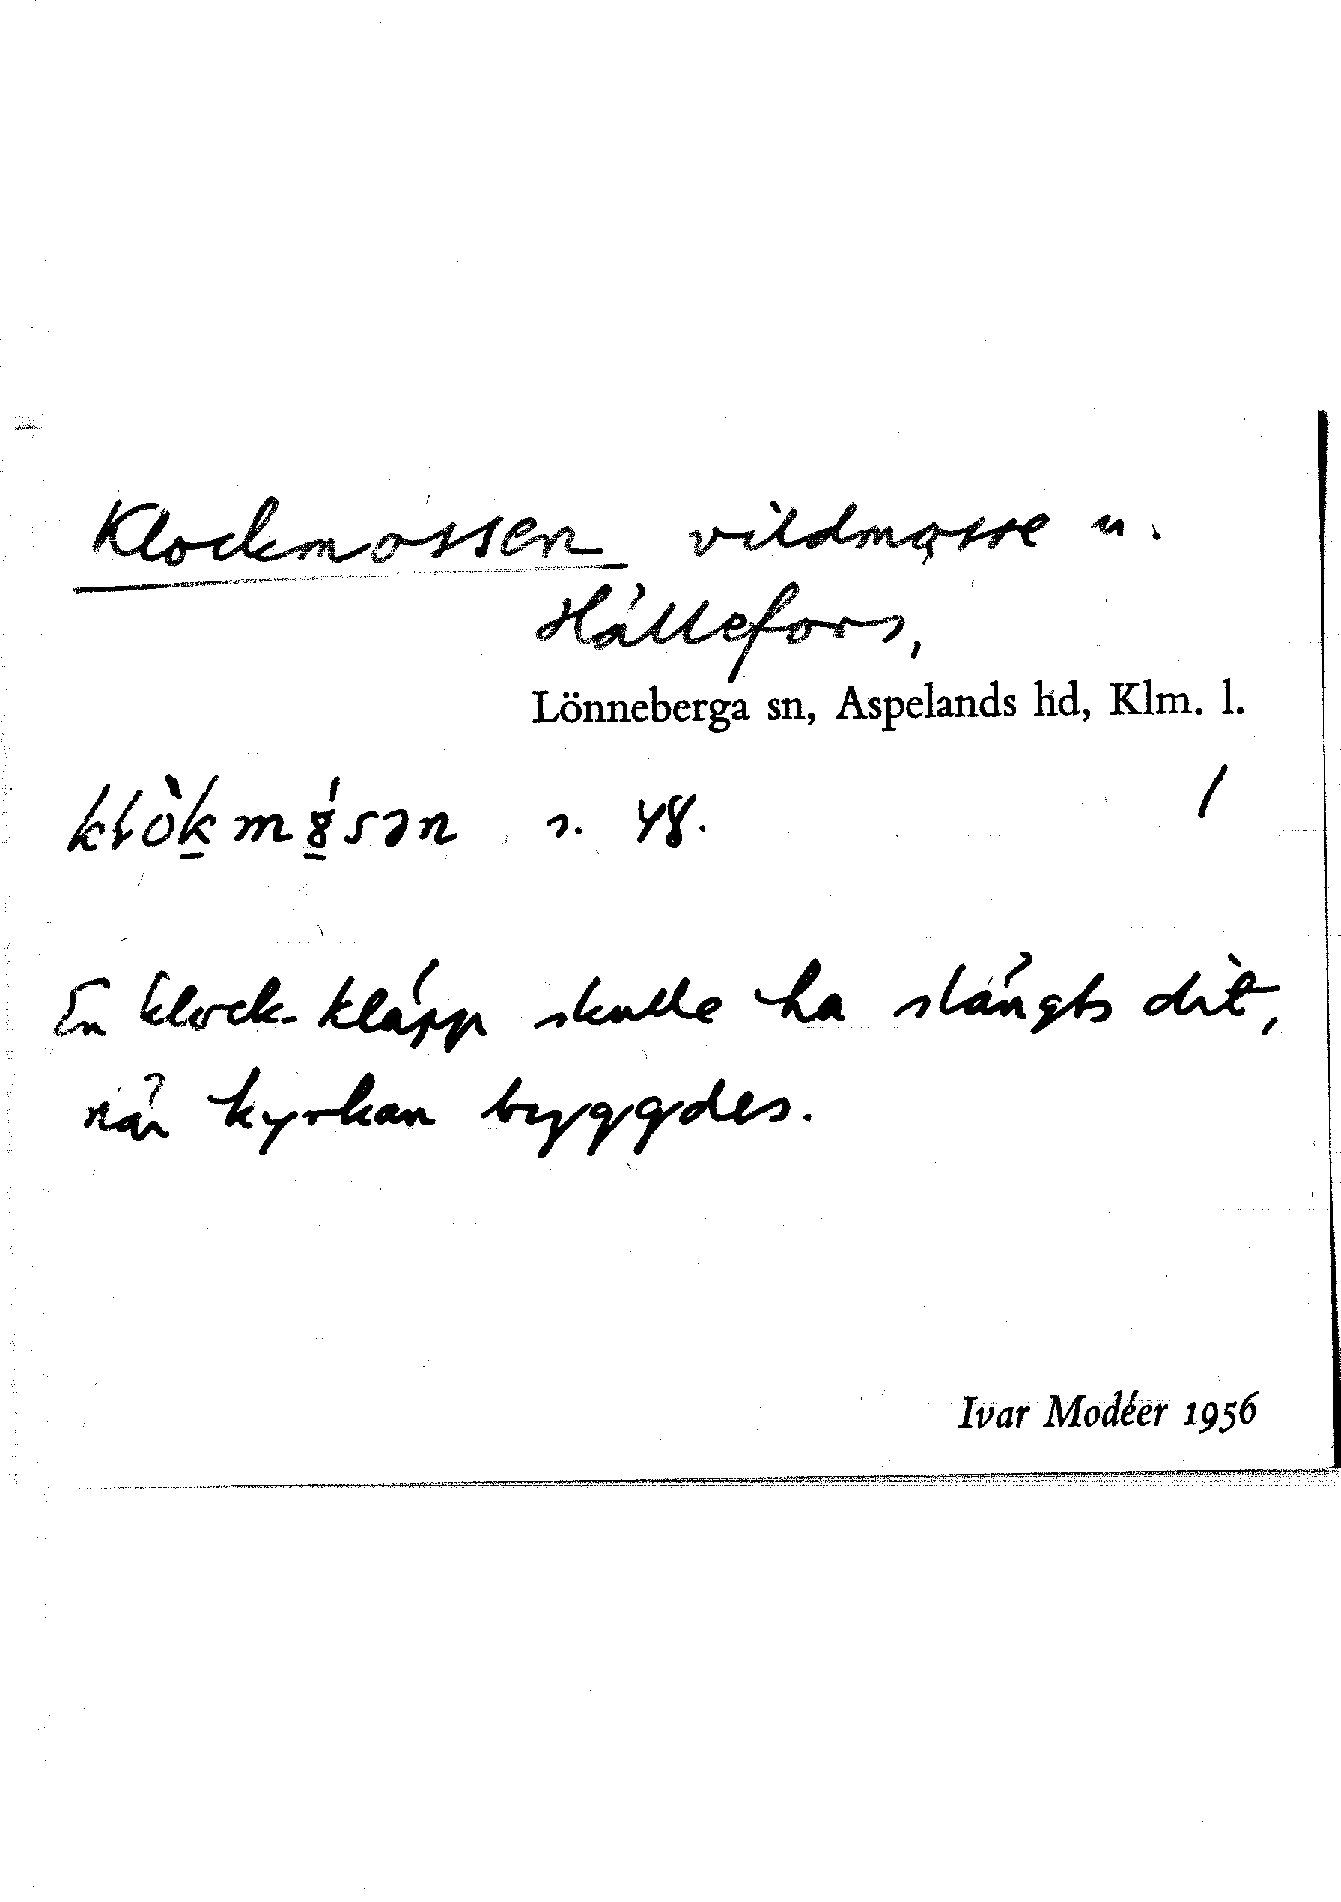 Klockmossen vildmosse u.
Hällefors,
Lönneberga sn, Aspelands hd, Klm. l.
s. 48. /
En klock-kläpp skulle ha slängts dit,
när kyrkan byggdes.
Ivar Modéer 1956